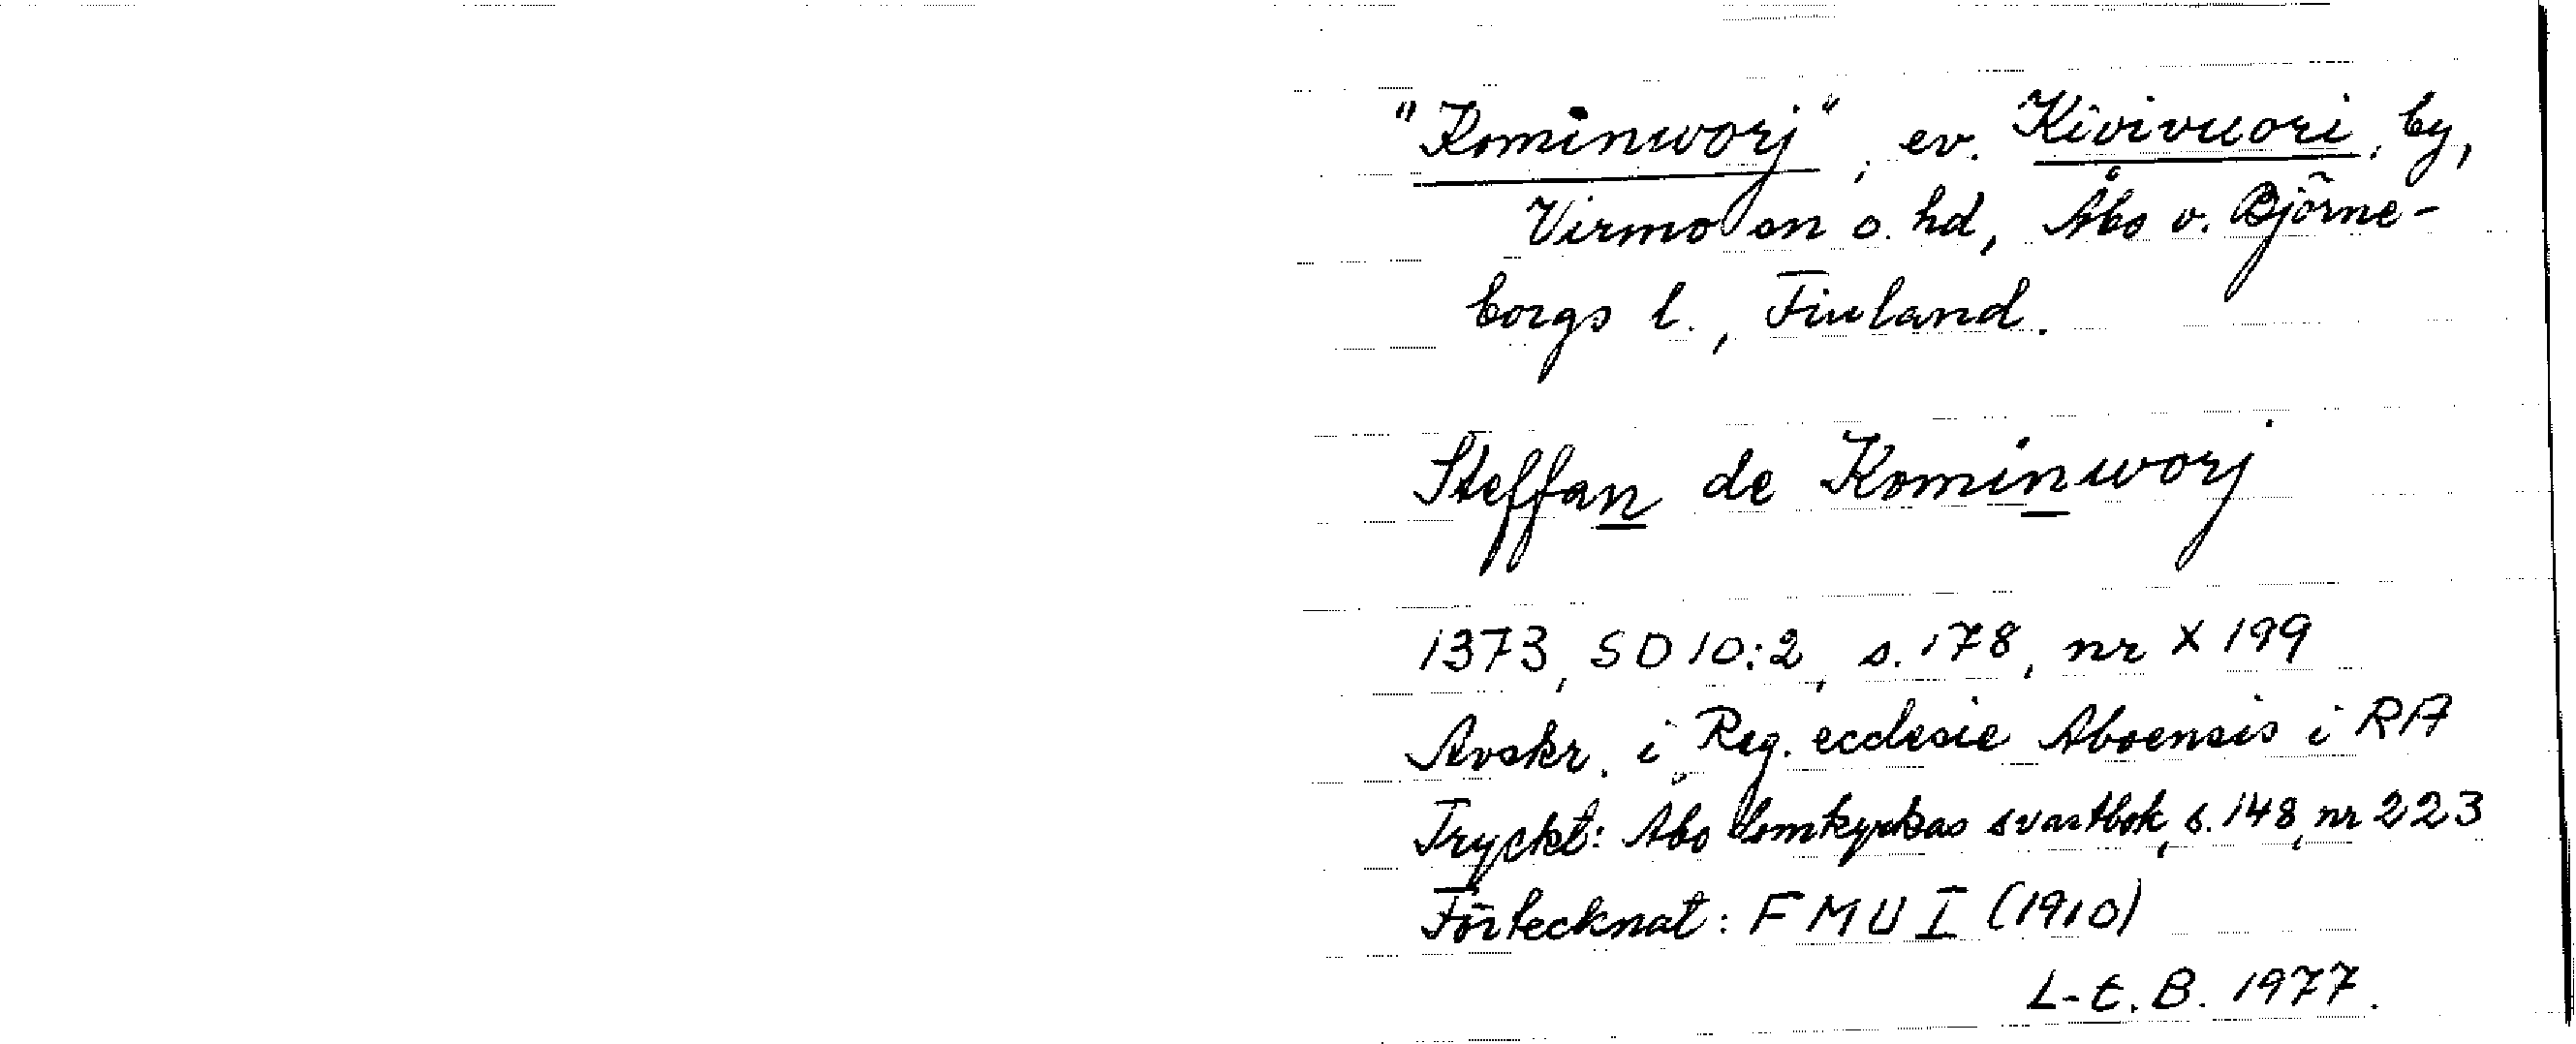 "Kominworj", ev. Kivivuori, by,
Virmo sn o. hd, Åbo o. Björne-
borgs l., Finland.
Steffan de Kominworj
1373, SD 10:2, s. 178, nr X 199
Avskr. i Reg. ecclesie Aboensis i RA
Tryckt: Åbo domkyrkas svartbok, s. 148, nr 223
Förtecknat: FMU I (1910)
L-E. B. 1977.